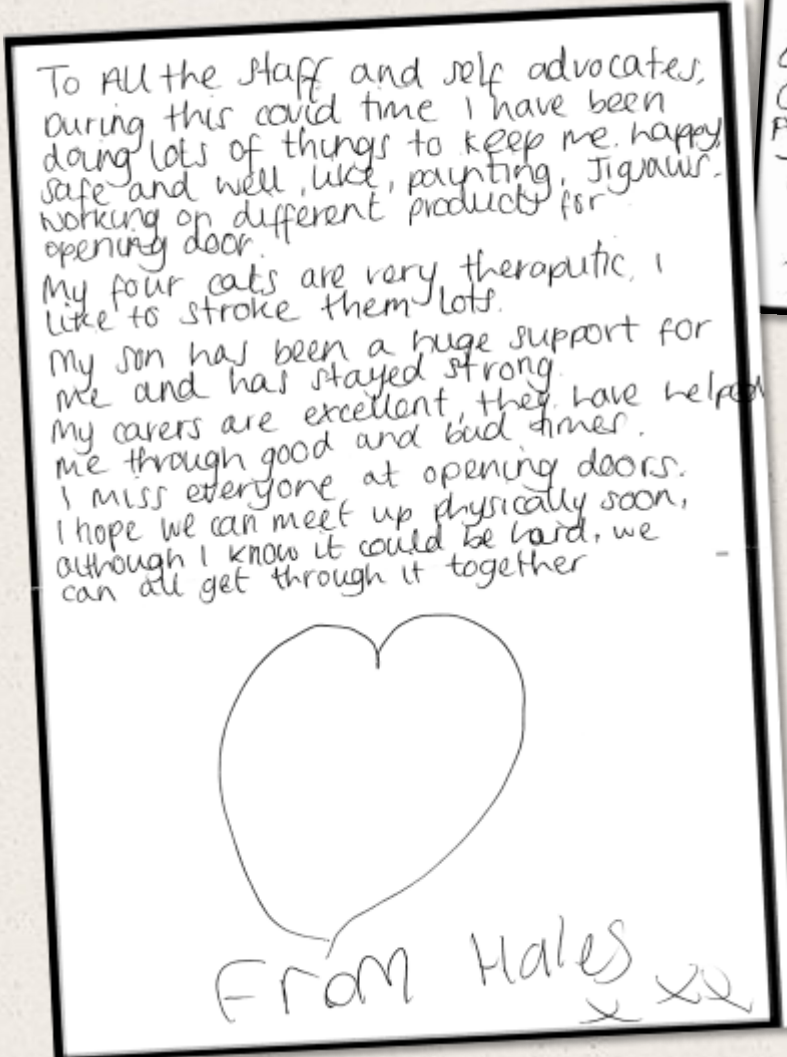 To All the staff and self advocates,
During this covid time I have been
doing lots of things to keep me happy,
safe and well, like, paynting, Jigsaws.
working on different products for
opening door.
My four cats are very theraputic, I
like to stroke them lots.
My son has been a huge support for
me and has stayed strong.
My carers are excellent, they have helped
me through good and bad times.
I miss everyone at opening doors.
I hope we can meet up physically soon,
although I know it could be hard, we
can all get through it together
From Hales
x xx